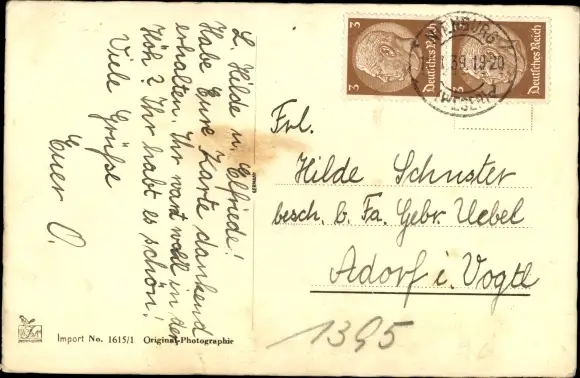 L. Hilde u. Elfriede!
Habe Eure Karte dankend
erhalten. Ihr wart wohl in der
Höh? Ihr habt es schön!
Viele Grüße
Euer O.
Import No. 1615/1 Original-Photographie
3 Deutsches Reich
3 Deutsches Reich
39.19-20
(WESER)
a
Frl.
Hilde Schuster
besch. b. Fa. Gebr. Uebel
Adorf i. Vogtl
1395